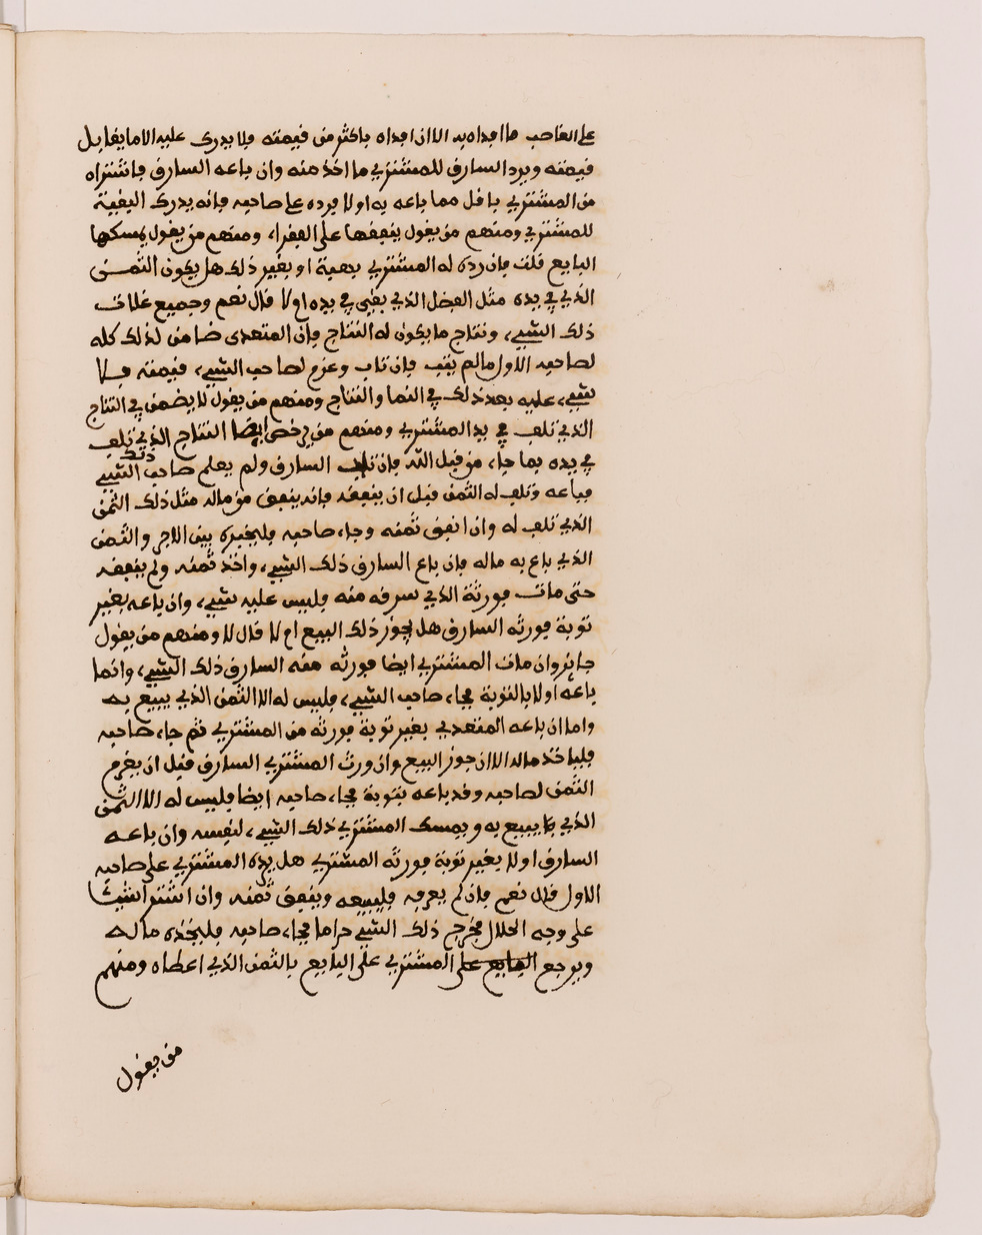 على الغاصب ما افداه به الا ان افداه باكثر من قيمته فلا يدرك عليه الا ما يقابل
قيمته ويرد السارق للمشتري ما اخذ منه وان باعه السارق فاشتراه
من المشتري باقل مما باعه به اولا يرده على صاحبه فانه يدرك البقية
للمشتري ومنهم من يقول ينفقها على الفقراء ومنهم من يقول يمسكها
البايع قلت فان رده له المشتري بهبة او بغير ذلك هل يكون الثمن
الذي في يده مثل الفضل الذي بقي في يده ام لا قال نعم وجميع غلات
ذلك الشيء ونتاج ما يكون له النتاج فان المتعدى ضامن لذلك كله
لصاحبه الاول ما لم يتب فان تاب وغرم لصاحب الشيء قيمته فلا
شيء عليه بعد ذلك في النما والنتاج ومنهم من يقول لا يضمن في النتاج
الذي تلف في يد المشتري ومنهم من يرخص ايضا النتاج الذي تلف
في يده بما جاء من قبل الله فان تاب السارق ولم يعلم صاحب ذلك الشيء
فباعه وتلف له الثمن قبل ان ينفقه فانه ينفق من ماله مثل ذلك الثمن
الذي تلف له وان انفق ثمنه وجاء صاحبه فليخيره بين الاجر والثمن
الذي باع به ماله فان باع السارق ذلك الشيء واخذ ثمنه ولم ينفقه
حتى مات فورثه الذي سرقه منه فليس عليه شيء وان باعه بغير
توبة فورثه السارق هل يجوز ذلك البيع ام لا قال لا ومنهم من يقول
جائز وان مات المشتري ايضا فورثه منه السارق ذلك الشيء وانما
باعه اولا بالتوبة فجاء صاحب الشيء فليس له الا الثمن الذي يبيع به
واما ان باعه المتعدي بغير توبة فورثه من المشتري ثم جاء صاحبه
فلياخذ ماله الا ان جوز البيع وان ورث المشتري السارق قبل ان يغرم
الثمن لصاحبه وقد باعه بتوبة فجاء صاحبه ايضا فليس له الا الثمن
الذي يبيع به ويمسك المشتري ذلك الشيء لنفسه وان باعه
السارق اولا بغير توبة فورثه المشتري هل يرده المشتري على صاحبه
الاول قال نعم فان لم يعرفه فليبيعه وينفق ثمنه وان اشترا شيئا
على وجه الحلال فخرج ذلك الشيء حراما فجاء صاحبه فليخذه ماله
ويرجع المشتري على البايع بالثمن الذي اعطاه ومنهم
من يقول